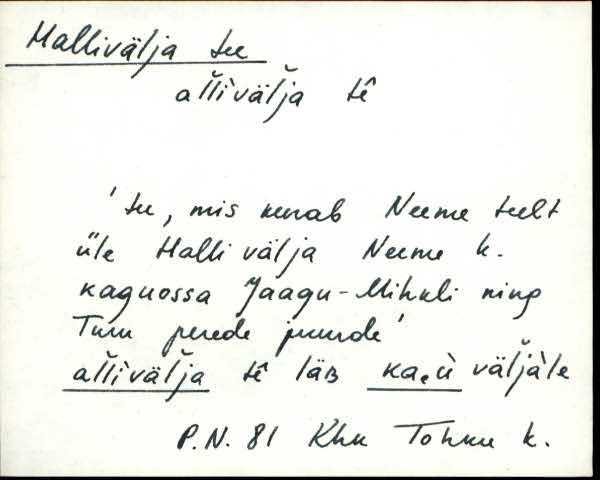 Hallivälja tee
al̆l̆ivälja tê
'tee, mis viib Neeme teelt
üle Hallivälja Neeme k.
kaguossa Jaagu-Mihkli ning
Turu perede juurde'
al̆l̆ivälja tê läB väljàle
P.N. 81 Khk Tohku k.